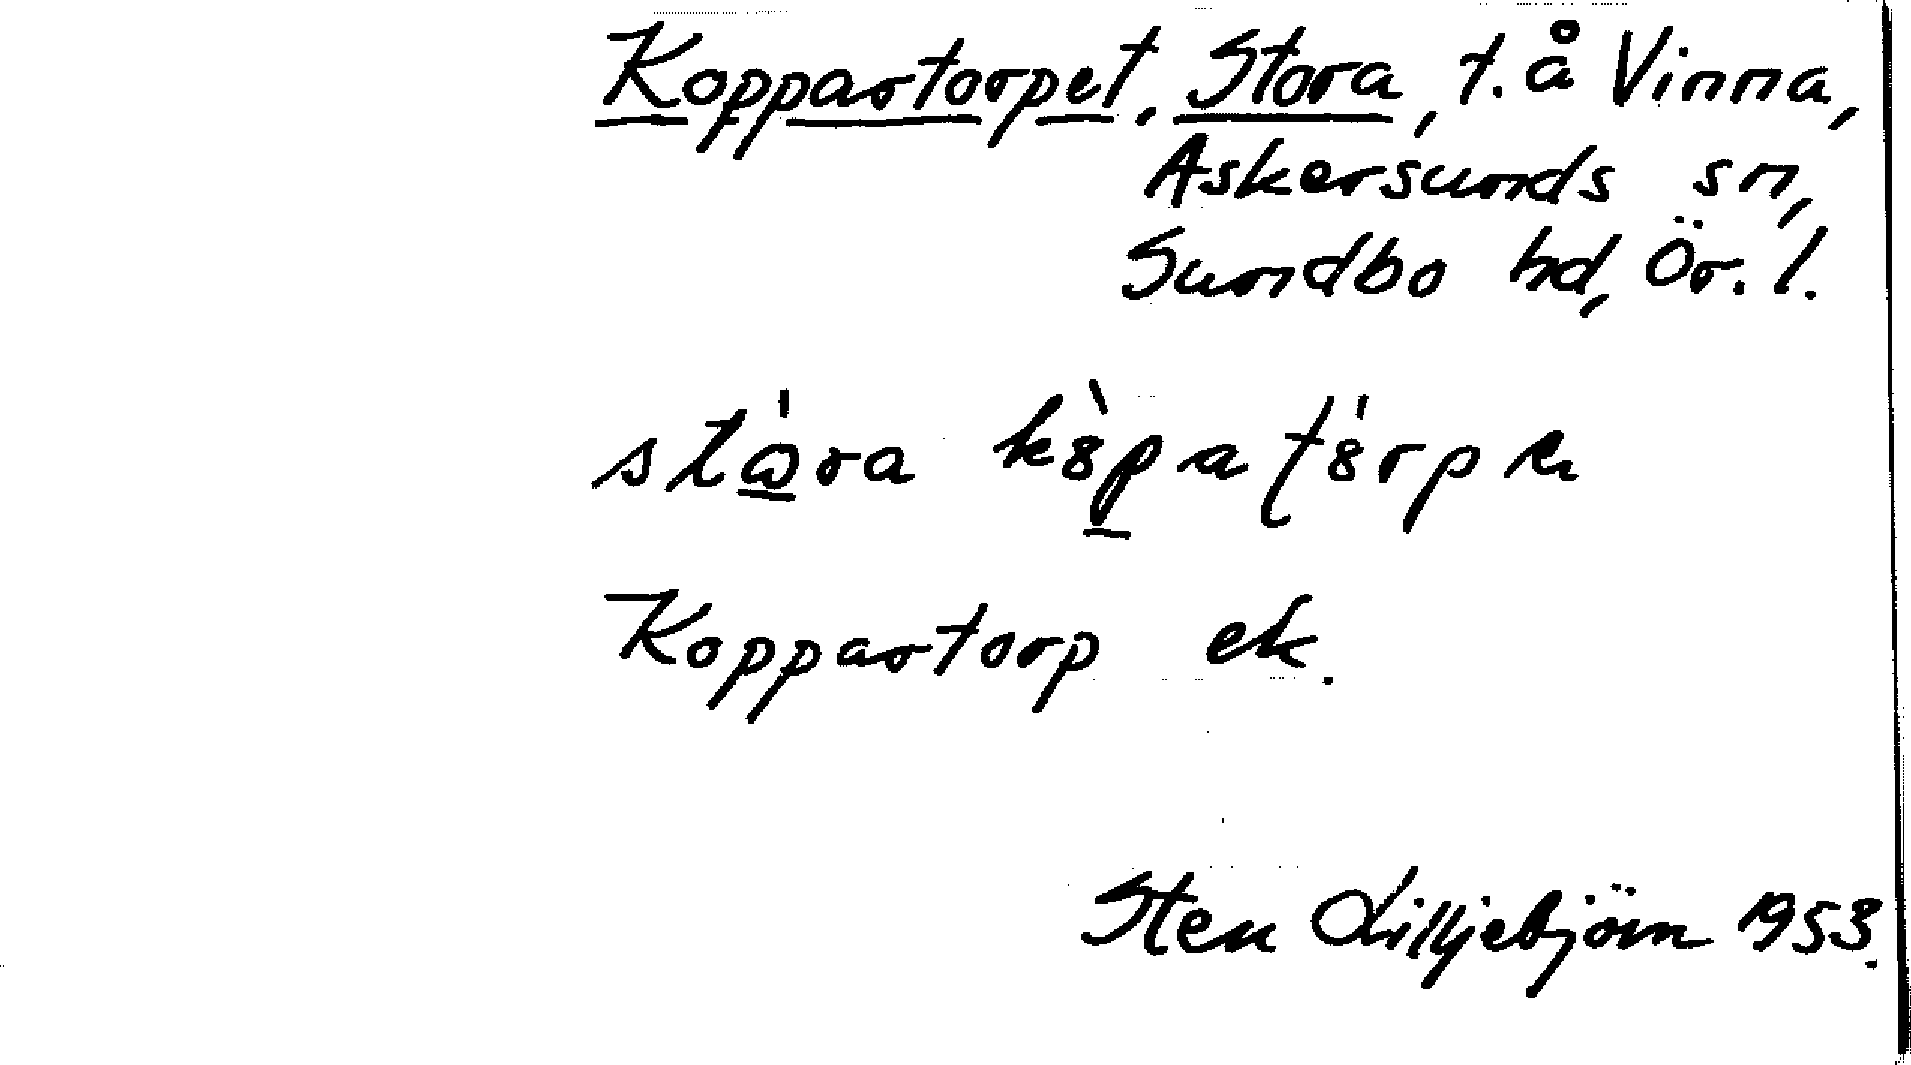 Koppartorpet, Stora, t. å Vinna,
Askersunds sn,
Sundbo hd, Ör. l.
Koppartorp ek.
Sten Lilljebjörn 1953.